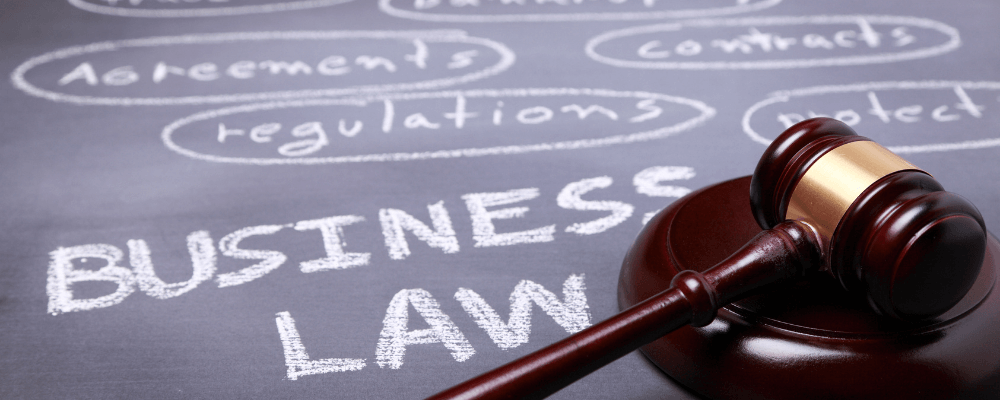 Agreements
contracts
regulations
protect
BUSINESS
LAW